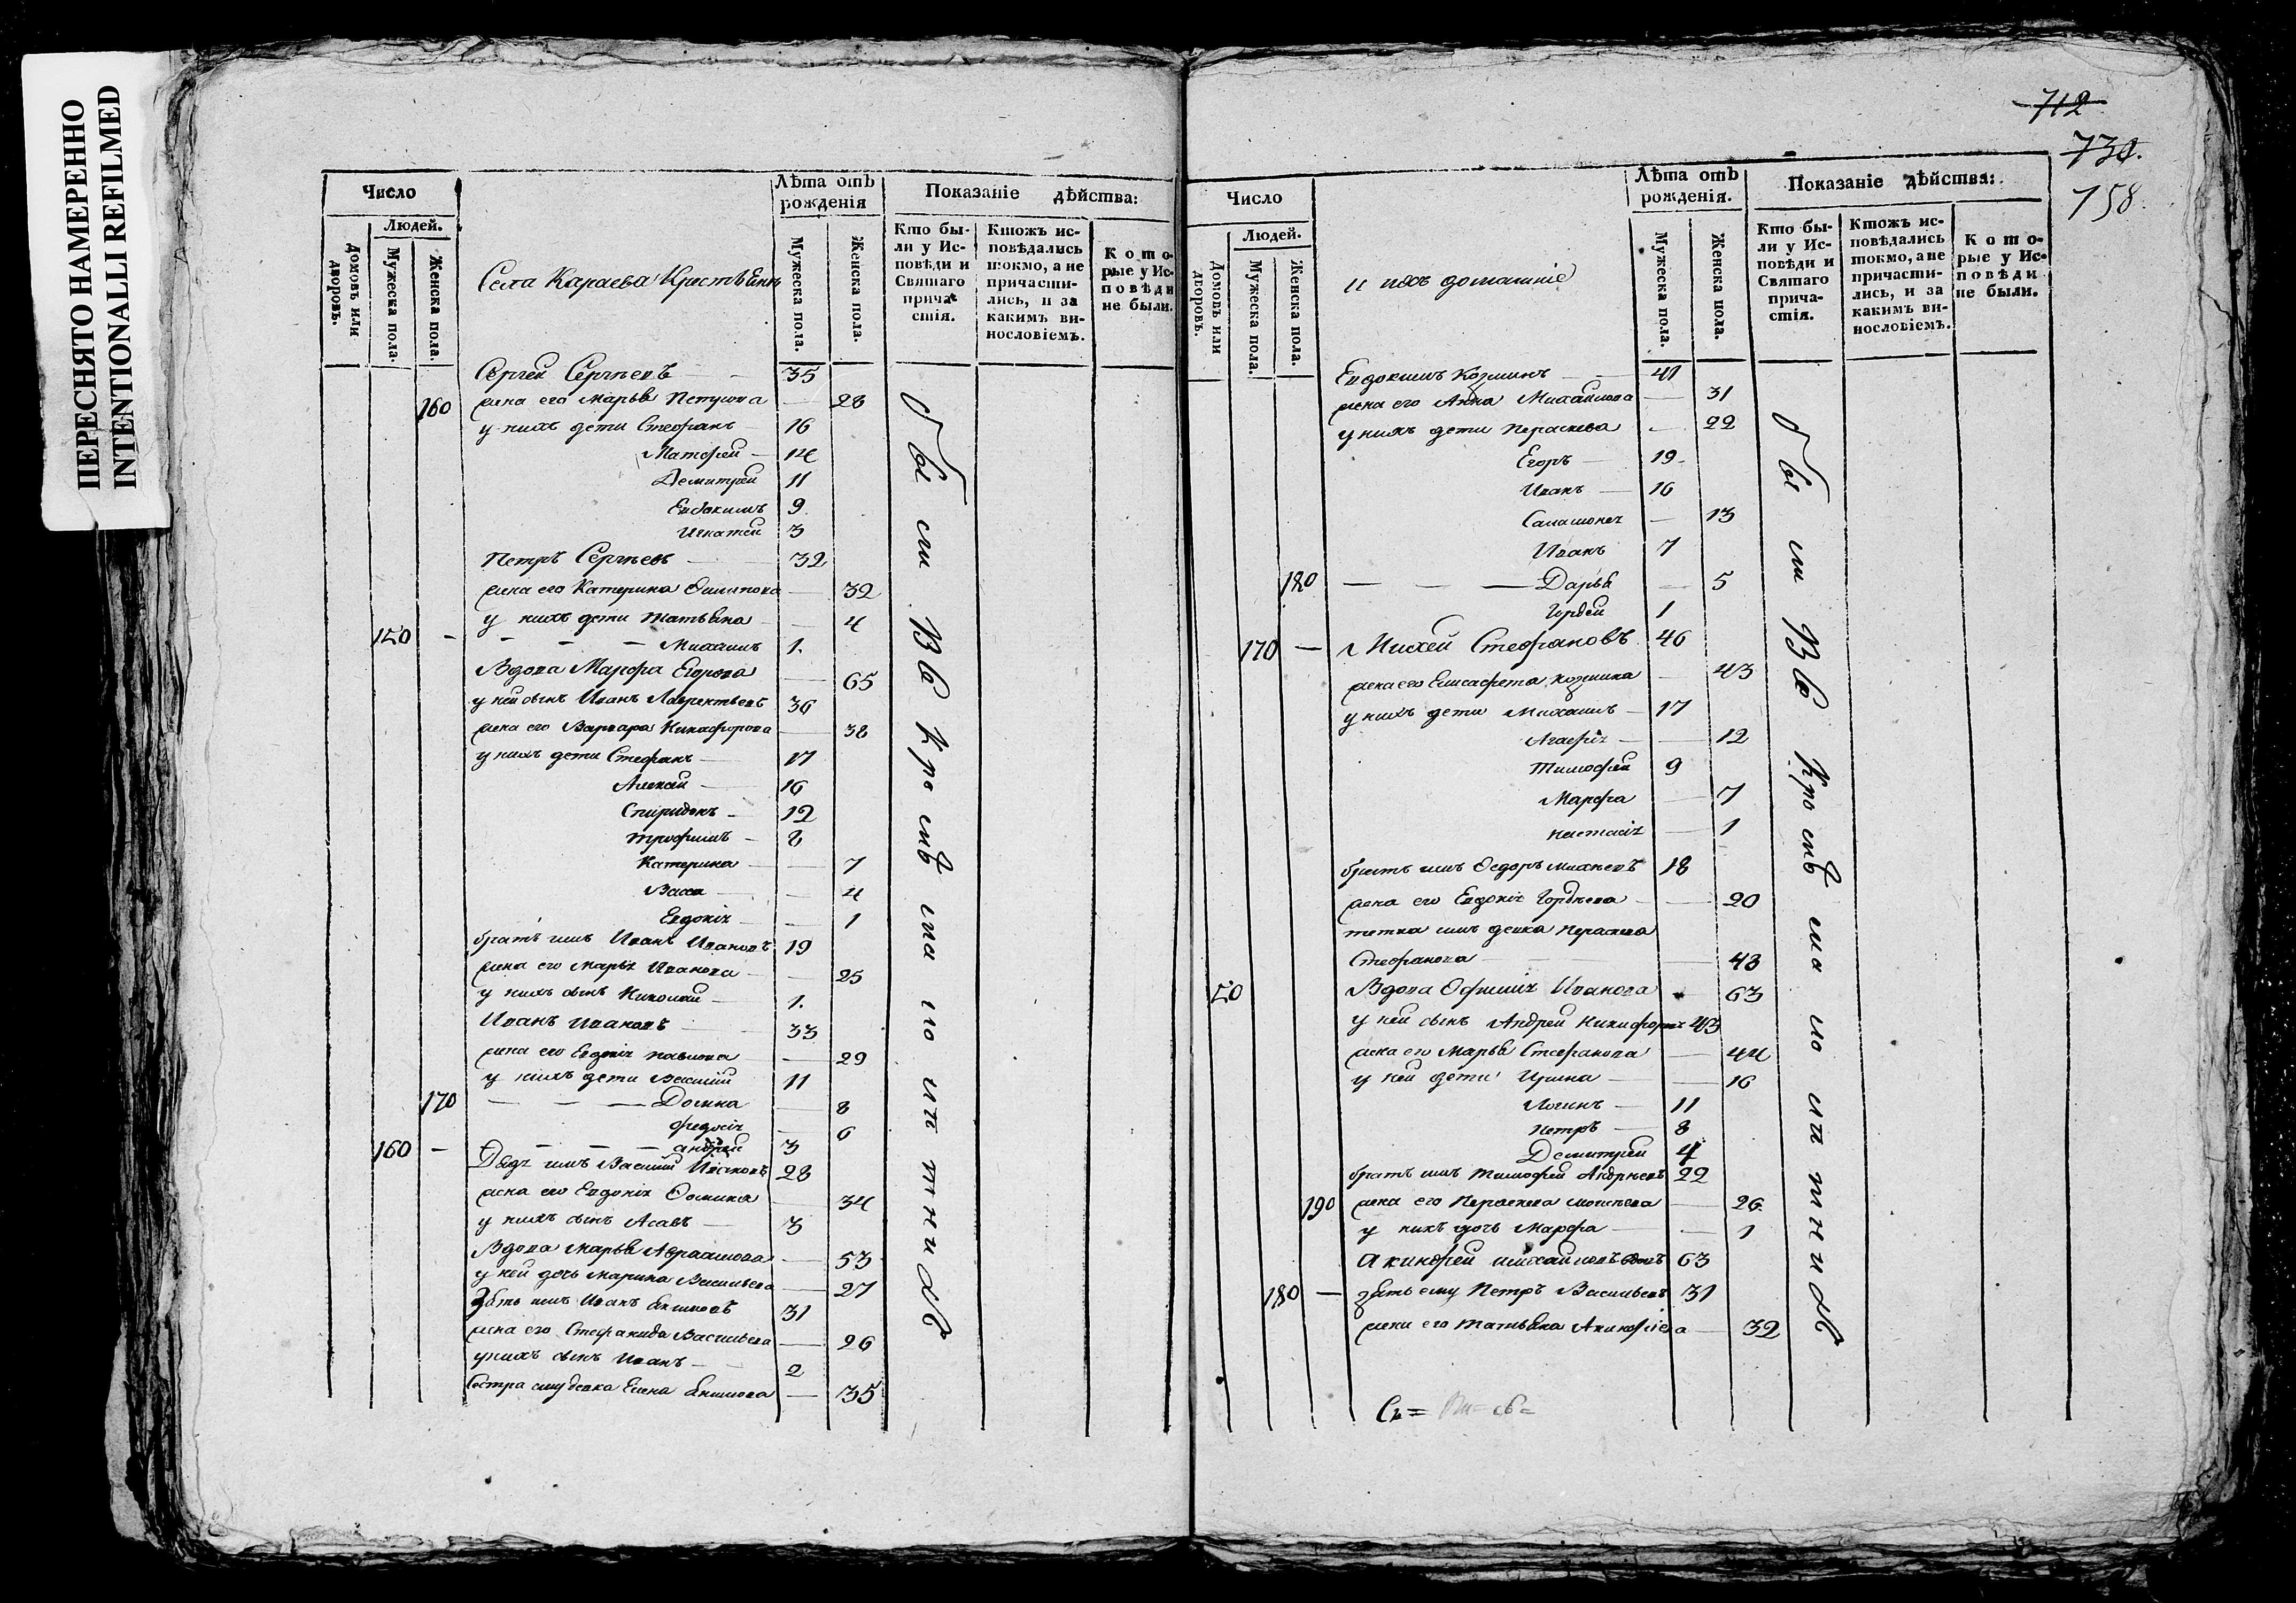 ПЕРЕСНЯТО НАМЕРЕННО
INTENTIONALLI REFILMED
Число
Людей.
Домовъ или дворовъ.
Мужеска пола.
Женска пола.
Села Караева Крестьяня
Лѣта отъ рожденія
Мужеска пола.
Женска пола.
Показаніе дѣйства:
Кто были у Исповѣди и Святаго причастія.
Ктожъ исповѣдались токмо, а не причастились, и за какимъ винословіемъ.
Которые у Исповѣди не были.
Сергей Сергѣевъ 35
160 жена его Марья 28
у нихъ дети Стефанъ 16
Матфей 14
Демитрей 11
Евдокимъ 9
Игнатей 3
Петръ Сергѣевъ 32
жена его Катерина 32
у нихъ дети Татьяна 4
150 Михаилъ 1
Вдова Марфа Егорова 65
у ней сынъ Иванъ Лаврентьевъ 36
жена его Варвара Никифорова 38
у нихъ дети Стефанъ 17
Алексей 16
Спиридонъ 12
Трофимъ 8
Катерина 7
Васса 4
Евдокія 1
братъ имъ Иванъ Ивановъ 19
жена его Марья Иванова 25
у нихъ сынъ Николай 1
Иванъ Ивановъ 33
жена его Евдокія Павлова 29
у нихъ дети Василий 11
170 Домна 8
Федосія 6
160 Андрей 3
Дядя имъ Василий Ивановъ 28
жена его Евдокія Фомина 34
у нихъ сынъ 3
Вдова Марья Авраамова 53
у ней дочь Марина Васильева 27
Зять имъ Иванъ Якимовъ 31
жена его Стефанида Васильева 26
у нихъ сынъ Иванъ 2
сестра ему девка Елена Якимова 35
были в с
712
730.
758.
Число
Людей.
Домовъ или дворовъ.
Мужеска пола.
Женска пола.
и ихъ домашніе
Лѣта отъ рожденія.
Мужеска пола.
Женска пола.
Показаніе дѣйства:
Кто были у Исповѣди и Святаго причастія.
Ктожъ исповѣдались токмо, а не причастились, и за какимъ винословіемъ.
Которые у Исповѣди не были.
Евдокимъ Козминъ 41
жена его Анна Михайлова 31
у нихъ дети Параскева 22
Егоръ 19
Иванъ 16
13
Иванъ 7
180 Дарья 5
Гордей 1
170 Михей Стефановъ 46
жена его Елисафета Козмина 43
у нихъ дети Михаилъ 17
Агафія 12
Тимофей 9
Марфа 7
Настасія 1
братъ имъ Федоръ Михеевъ 18
жена его Евдокія Гордѣева 20
тетка имъ девка Параскева
Стефанова 43
50 Вдова Офимія Иванова 63
у ней сынъ Андрей 43
жена его Марья Стефанова 44
у ней дети Ирина 16
Логинъ 11
Петръ 8
Демитрей 4
братъ имъ Тимофей Андреевъ 22
190 жена его Параскева 26
у нихъ дочь Марфа 1
Акинфей Михайловъ 63
180 зять ему Петръ Васильевъ 31
жена его Татьяна Акинфіева 32
были в с